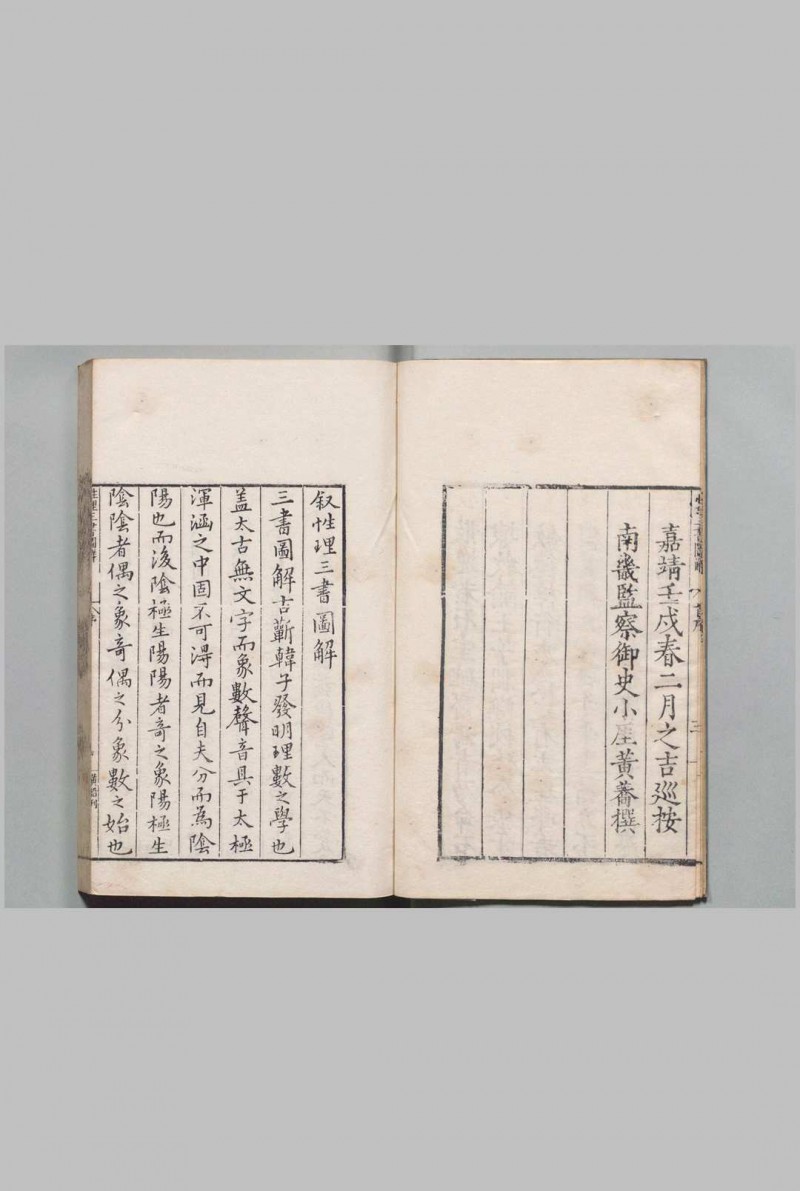 嘉靖壬戌春二月之吉廵按
南畿監察御史小厓黃蕃撰
叙性理三書圖解
三書圖解吉蘄韓子發明理數之學也
盖太古無文字而象數聲音具于太極
渾涵之中固不可淂而見自夫分而為陰
陽也而後陰極生陽陽者奇之象陽極生
陰陰者偶之象奇偶之分象數之始也